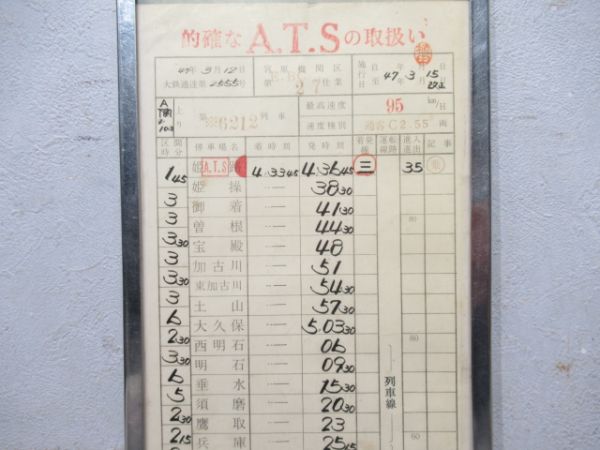 的確な A.T.S の取扱い
47年3月12日
大鉄運達第2555号
宮原機関区
第 27 仕業
施行日 自 年 月 日
至 47年3月15日
上り
6212 列車
最高速度 95 km/h
速度種別 通客C2.55 両
区間時分 停車場名 着時刻 発時刻 着発線 運転線路 進入進出 記事
1 45 姫 A.T.S 4.33 45 4.36 45 三 35
姫操 38 30
3 御着 41 30
3 曽根 44 30
3 30 宝殿 48
3 加古川 51
3 30 東加古川 54 30
3 土山 57 30
6 大久保 5.03 30
2 30 西明石 06
3 30 明石 09 30
6 垂水 15 30
5 須磨 20 30
2 30 鷹取 23
2 15 兵庫 25 15
列車線
80
60